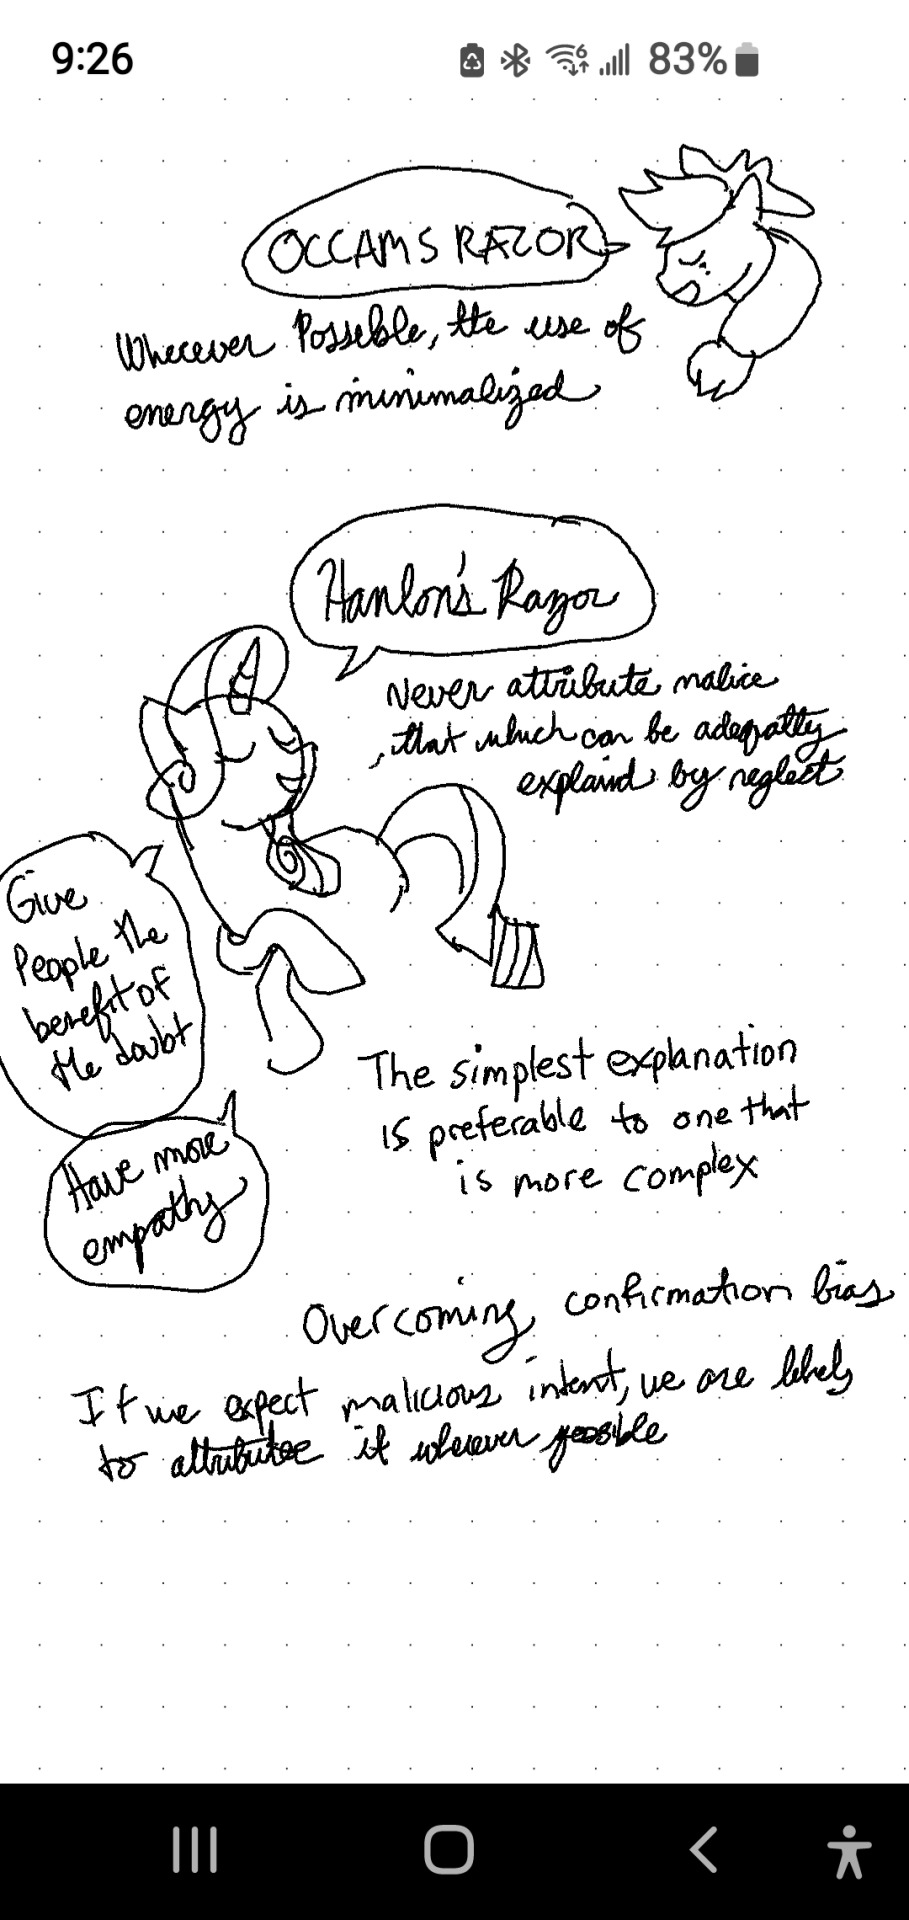 9:26
83%
OCCAMS RAZOR
Wherever Possible, the use of
energy is minimalized
Hanlon's Razor
Never attribute malice
, that which can be adeqatly
explaind by neglect
Give
People the
benefit of
the doubt
Have more
empathy
The simplest explanation
is preferable to one that
is more complex
Overcoming confirmation bias
If we expect malicious intent, we are likely
to attribute it wherever possible